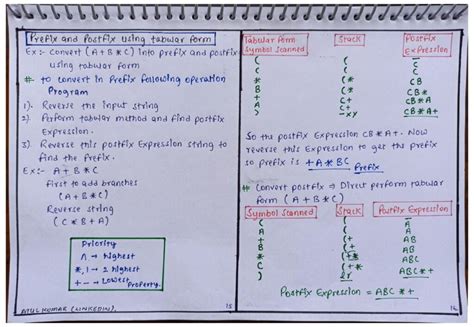 Prefix and Postfix using tabular form
Ex:- Convert (A+B*C) into prefix and postfix
using tabular form
# to convert in Prefix following operation
Program
1). Reverse the input string
2) Perform tabular method and find postfix
Expression.
3) Reverse this postfix Expression string to
find the Prefix.
Ex:- A+B*C
First to add branches
(A+B*C)
Reverse string
(C*B+A)
Priority
^ → highest
*, / → 2 highest
+ - → Lowest Property.
ATUL KUMAR (LINKEDIN).
15
Tabular form
Symbol Scanned Stack Postfix
Expression
( ( -
C ( C
* (* C
B (* CB
+ (+ CB*
A (+ CB*A
) CB*A+
So the postfix Expression CB*A+. Now
reverse this Expression to get the prefix
so prefix is +A*BC Prefix
# Convert postfix ⇒ Direct perform tabular
form (A+B*C)
Symbol Scanned Stack Postfix Expression
( ( -
A ( A
+ (+ A
B (+ AB
* (+* AB
C (+* ABC
) ABC*+
Postfix Expression = ABC*+
16